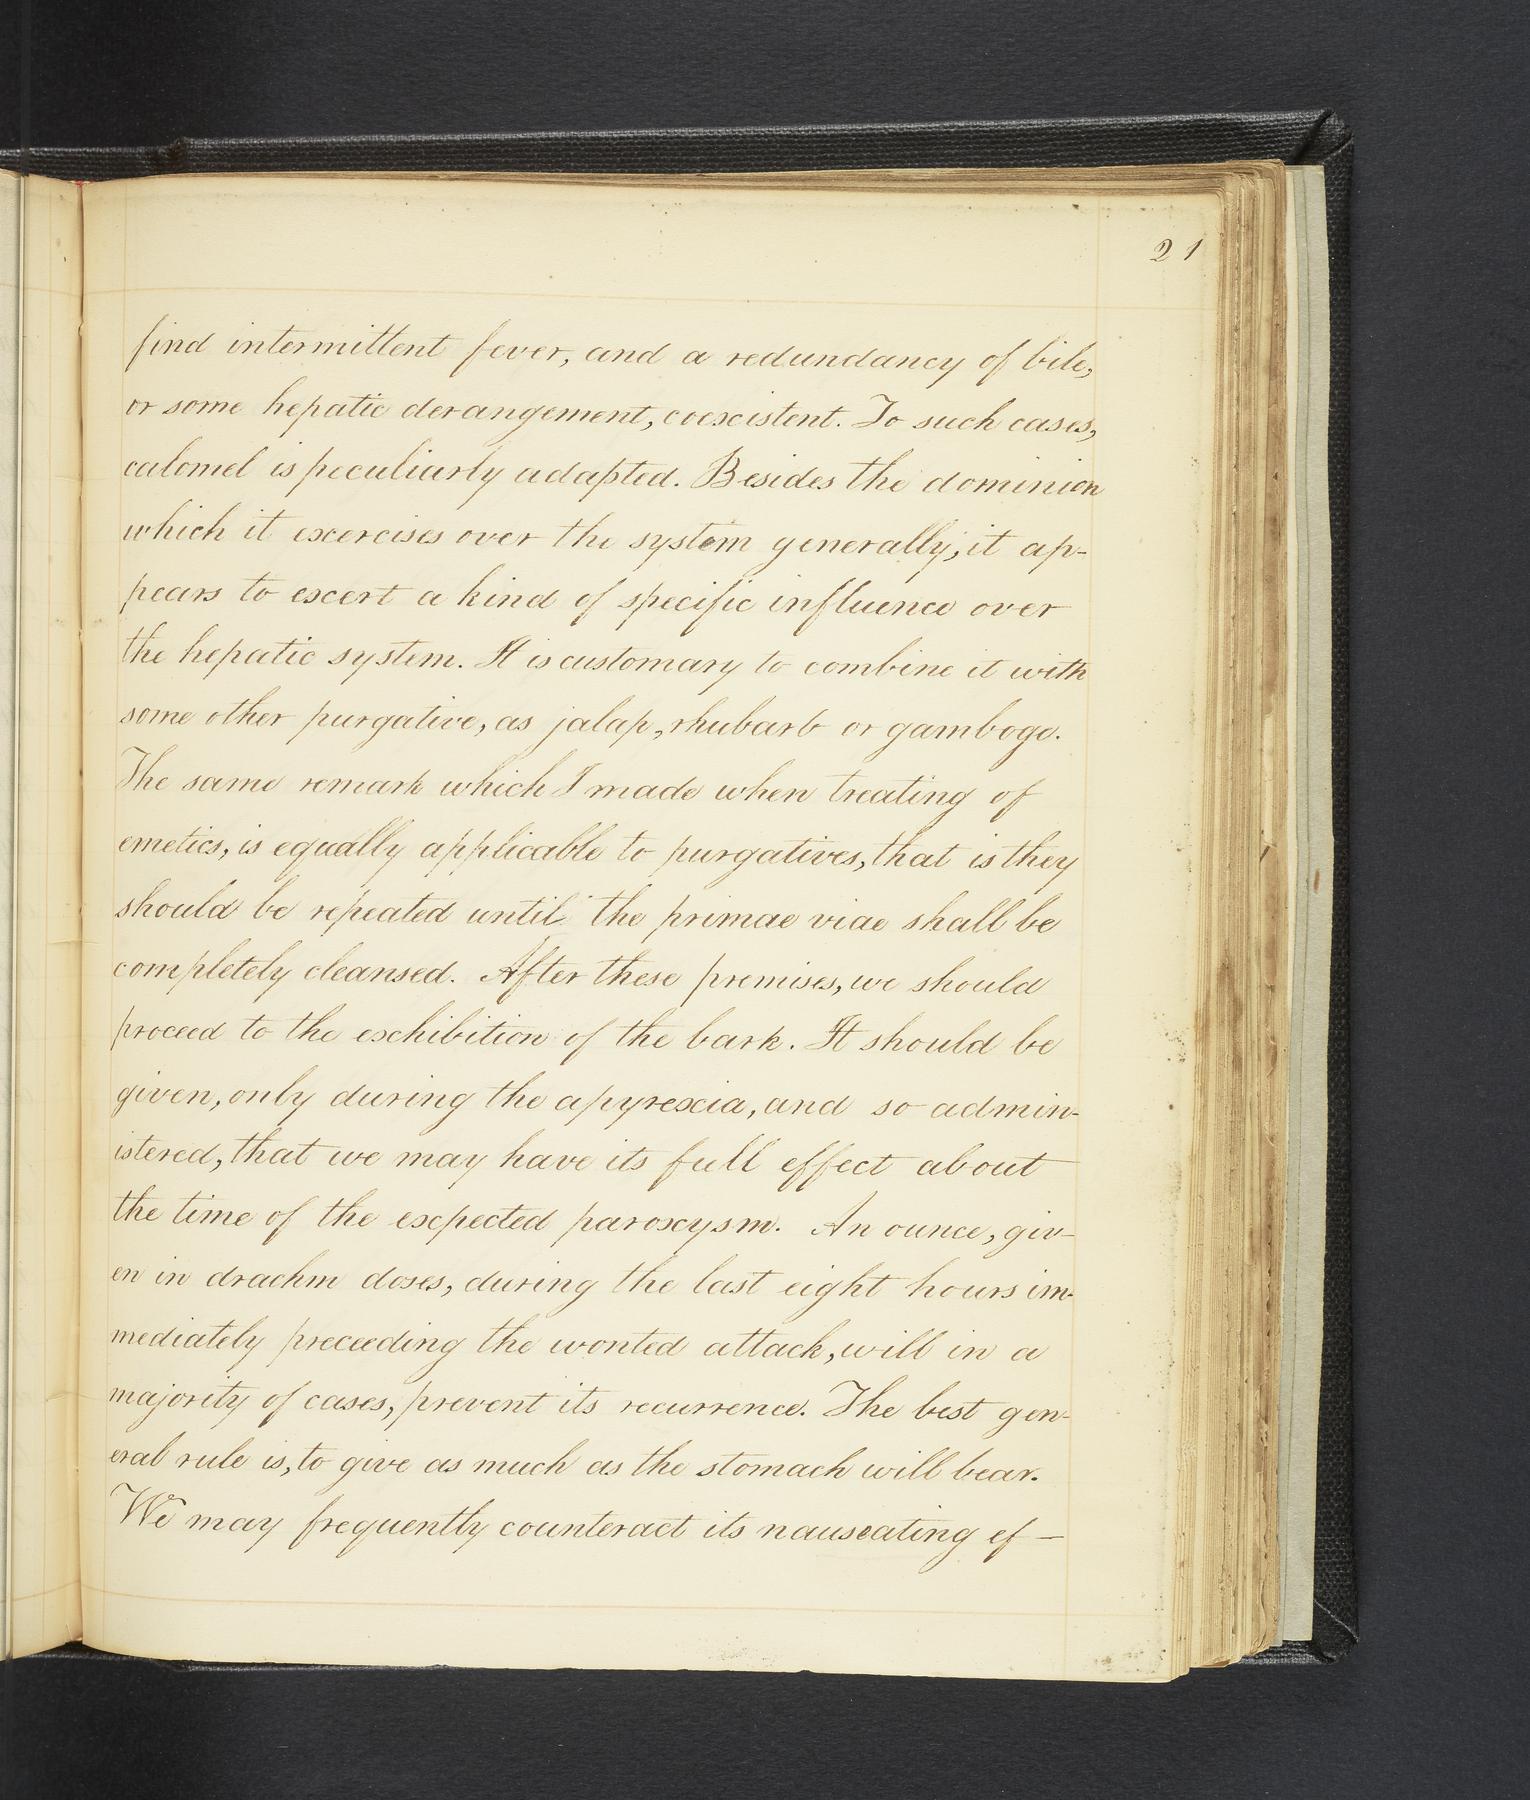 21
find intermittent fever, and a redundancy of bile,
or some hepatic derangement, coexistent. To such cases,
calomel is peculiarly adapted. Besides the dominion
which it exercises over the system generally, it ap-
pears to exert a kind of specific influence over
the hepatic system. It is customary to combine it with
some other purgative, as jalap, rhubarb or gamboge.
The same remark which I made when treating of
emetics, is equally applicable to purgatives, that is they
should be repeated until the primae viae shall be
completely cleansed. After these premises, we should
proceed to the exhibition of the bark. It should be
given, only during the apyrexia, and so admin-
istered, that we may have its full effect about
the time of the expected paroxysm. An ounce, giv-
en in drachm doses, during the last eight hours im-
mediately preceeding the wonted attack, will in a
majority of cases, prevent its recurrence. The best gen-
eral rule is, to give as much as the stomach will bear.
We may frequently counteract its nauseating ef-